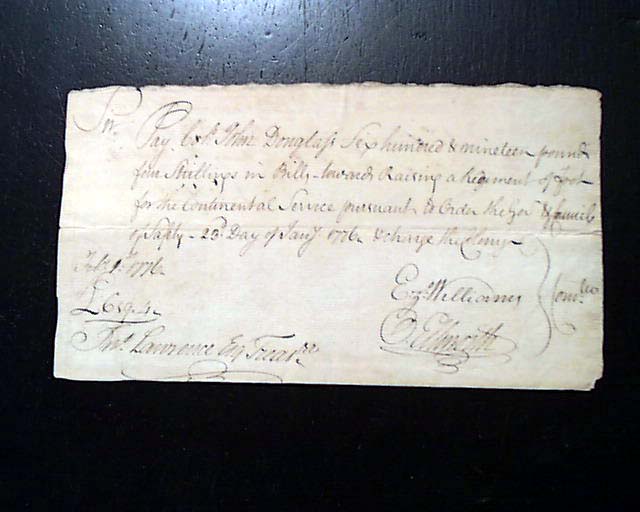 Sir,
Pay Colo. John Douglass Six hundred & nineteen pounds
four Shillings in Bills towards Raising a Regiment of foot
for the Continental Service pursuant to Order the Govr. & Council
of Safety 23d. Day of Jany. 1776 & charge the Colony
Feby. 1st. 1776
£619.4
Ezr. Williams
Comtee
O. Ellsworth
Jno. Lawrence Esq Treasr.